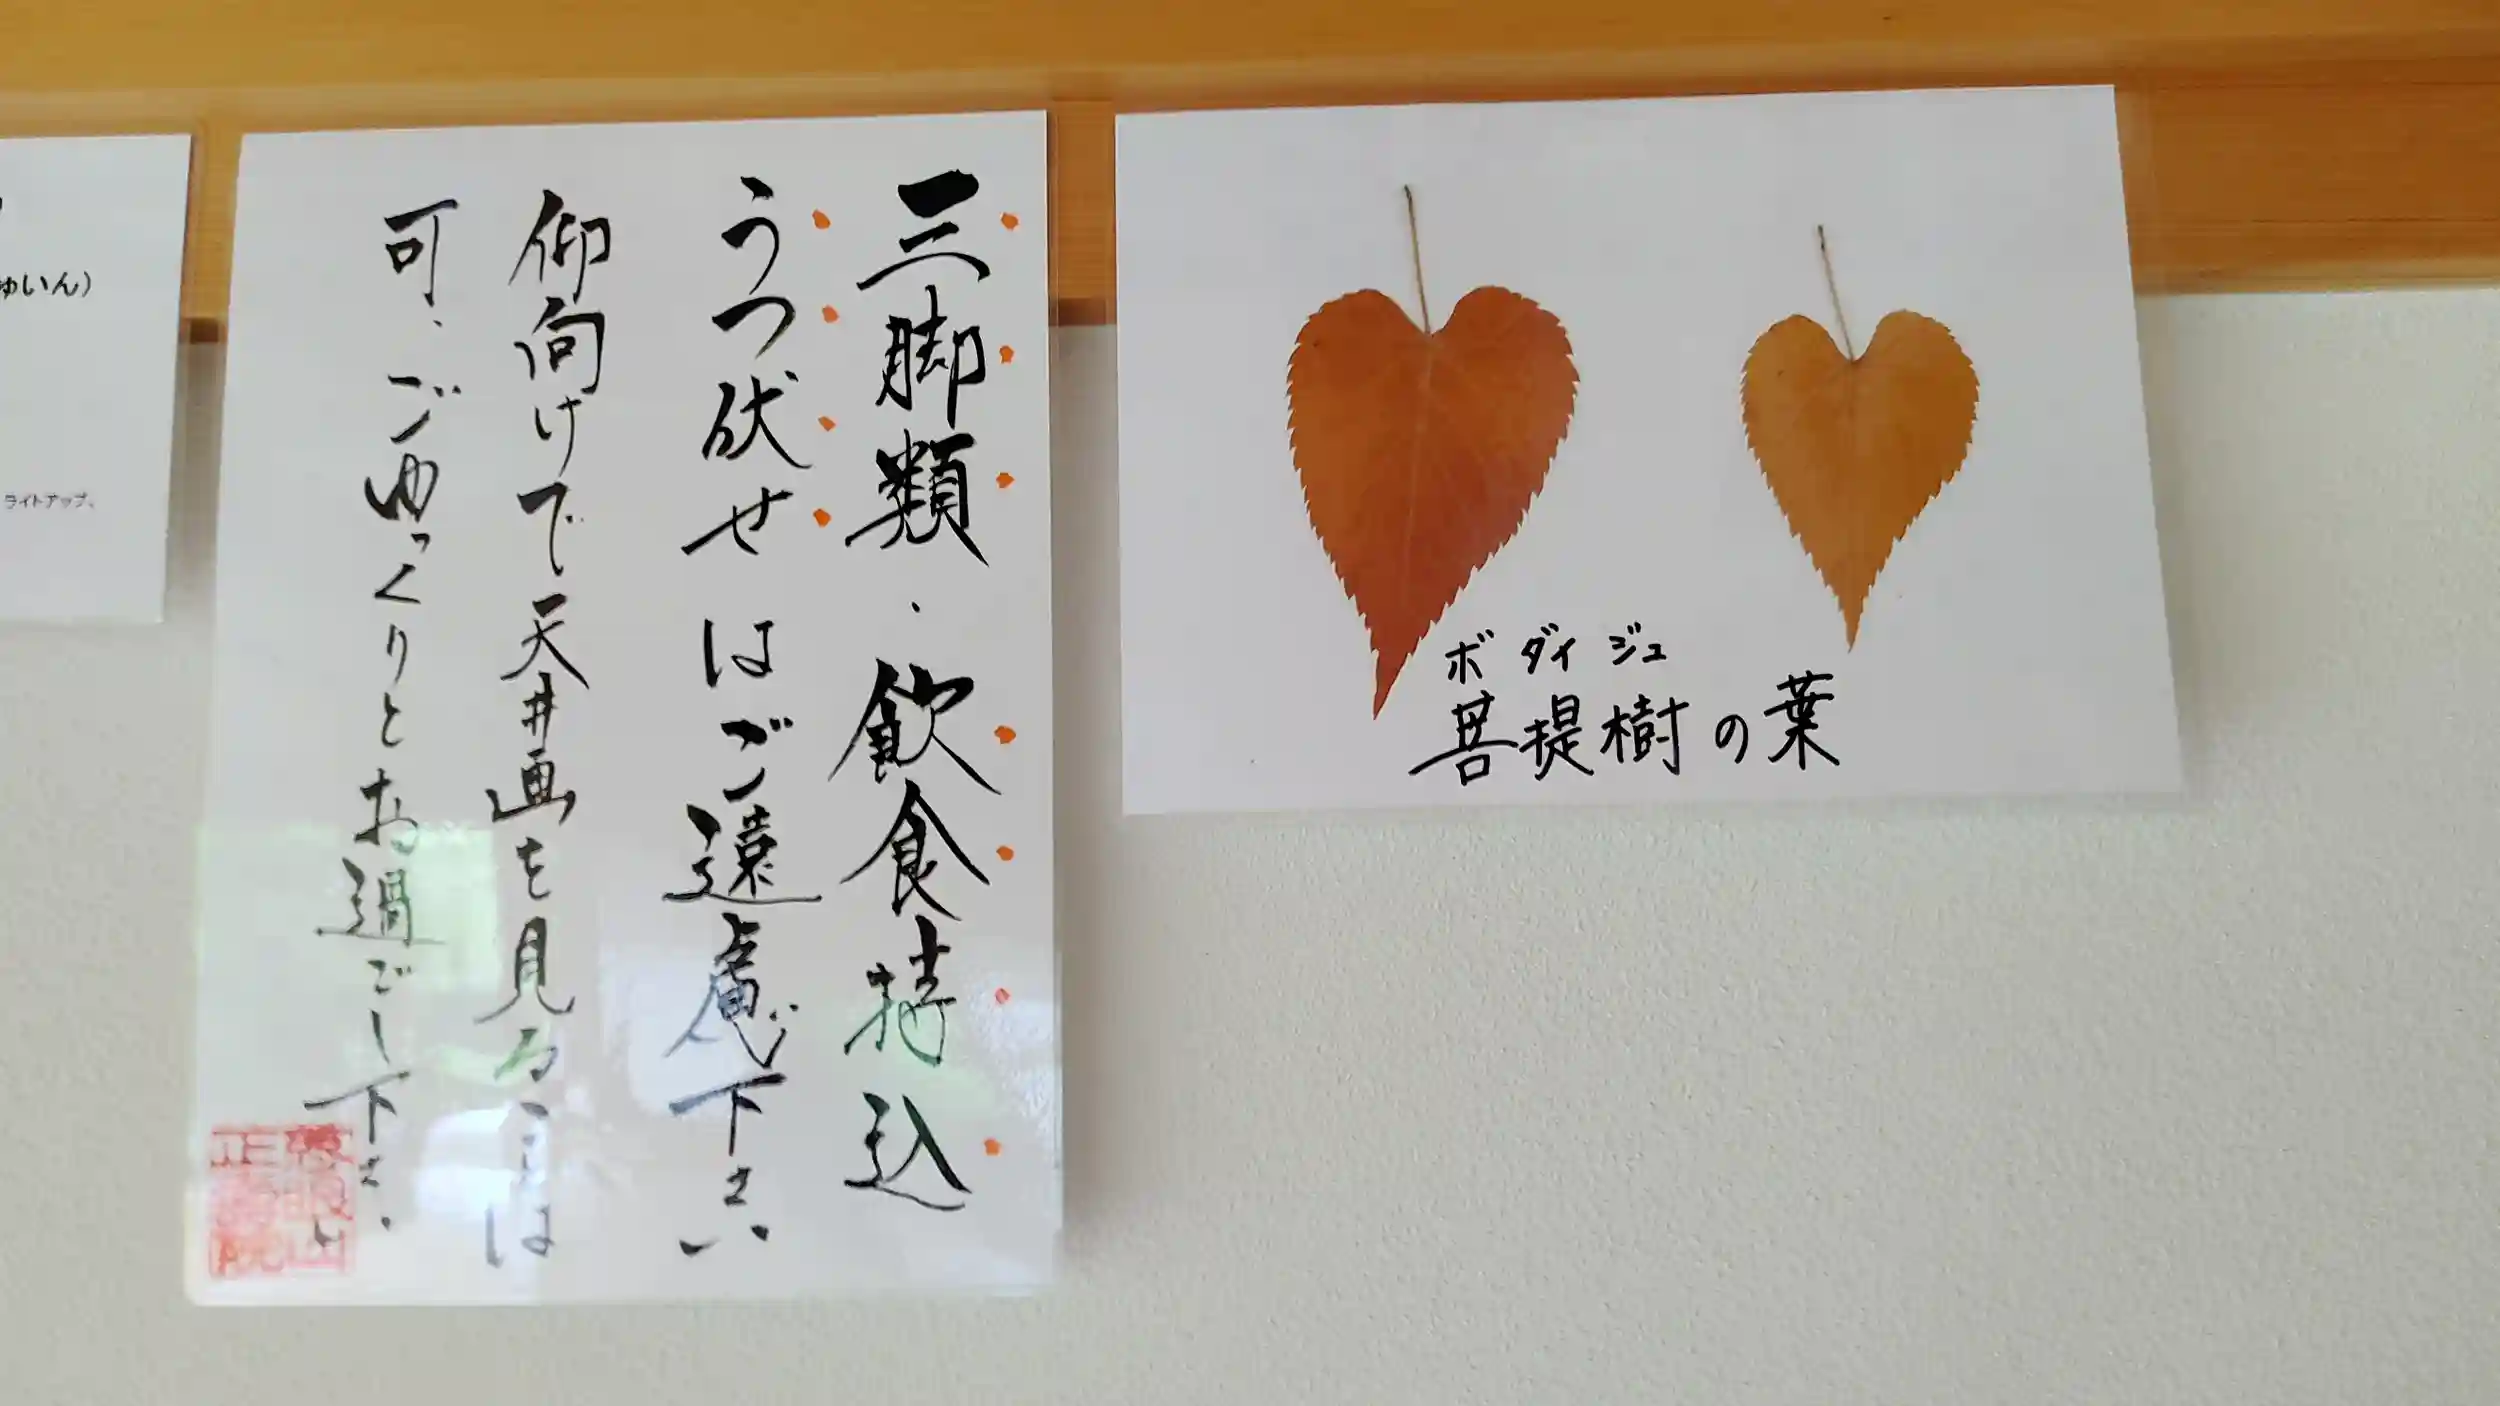 三脚類・飲食持込
うつ伏せはご遠慮下さい
仰向けで天井画を見ることは
可、ごゆっくりとお過ごし下さい
ボダイジュ
菩提樹の葉
ゅいん）
ライトアップ、